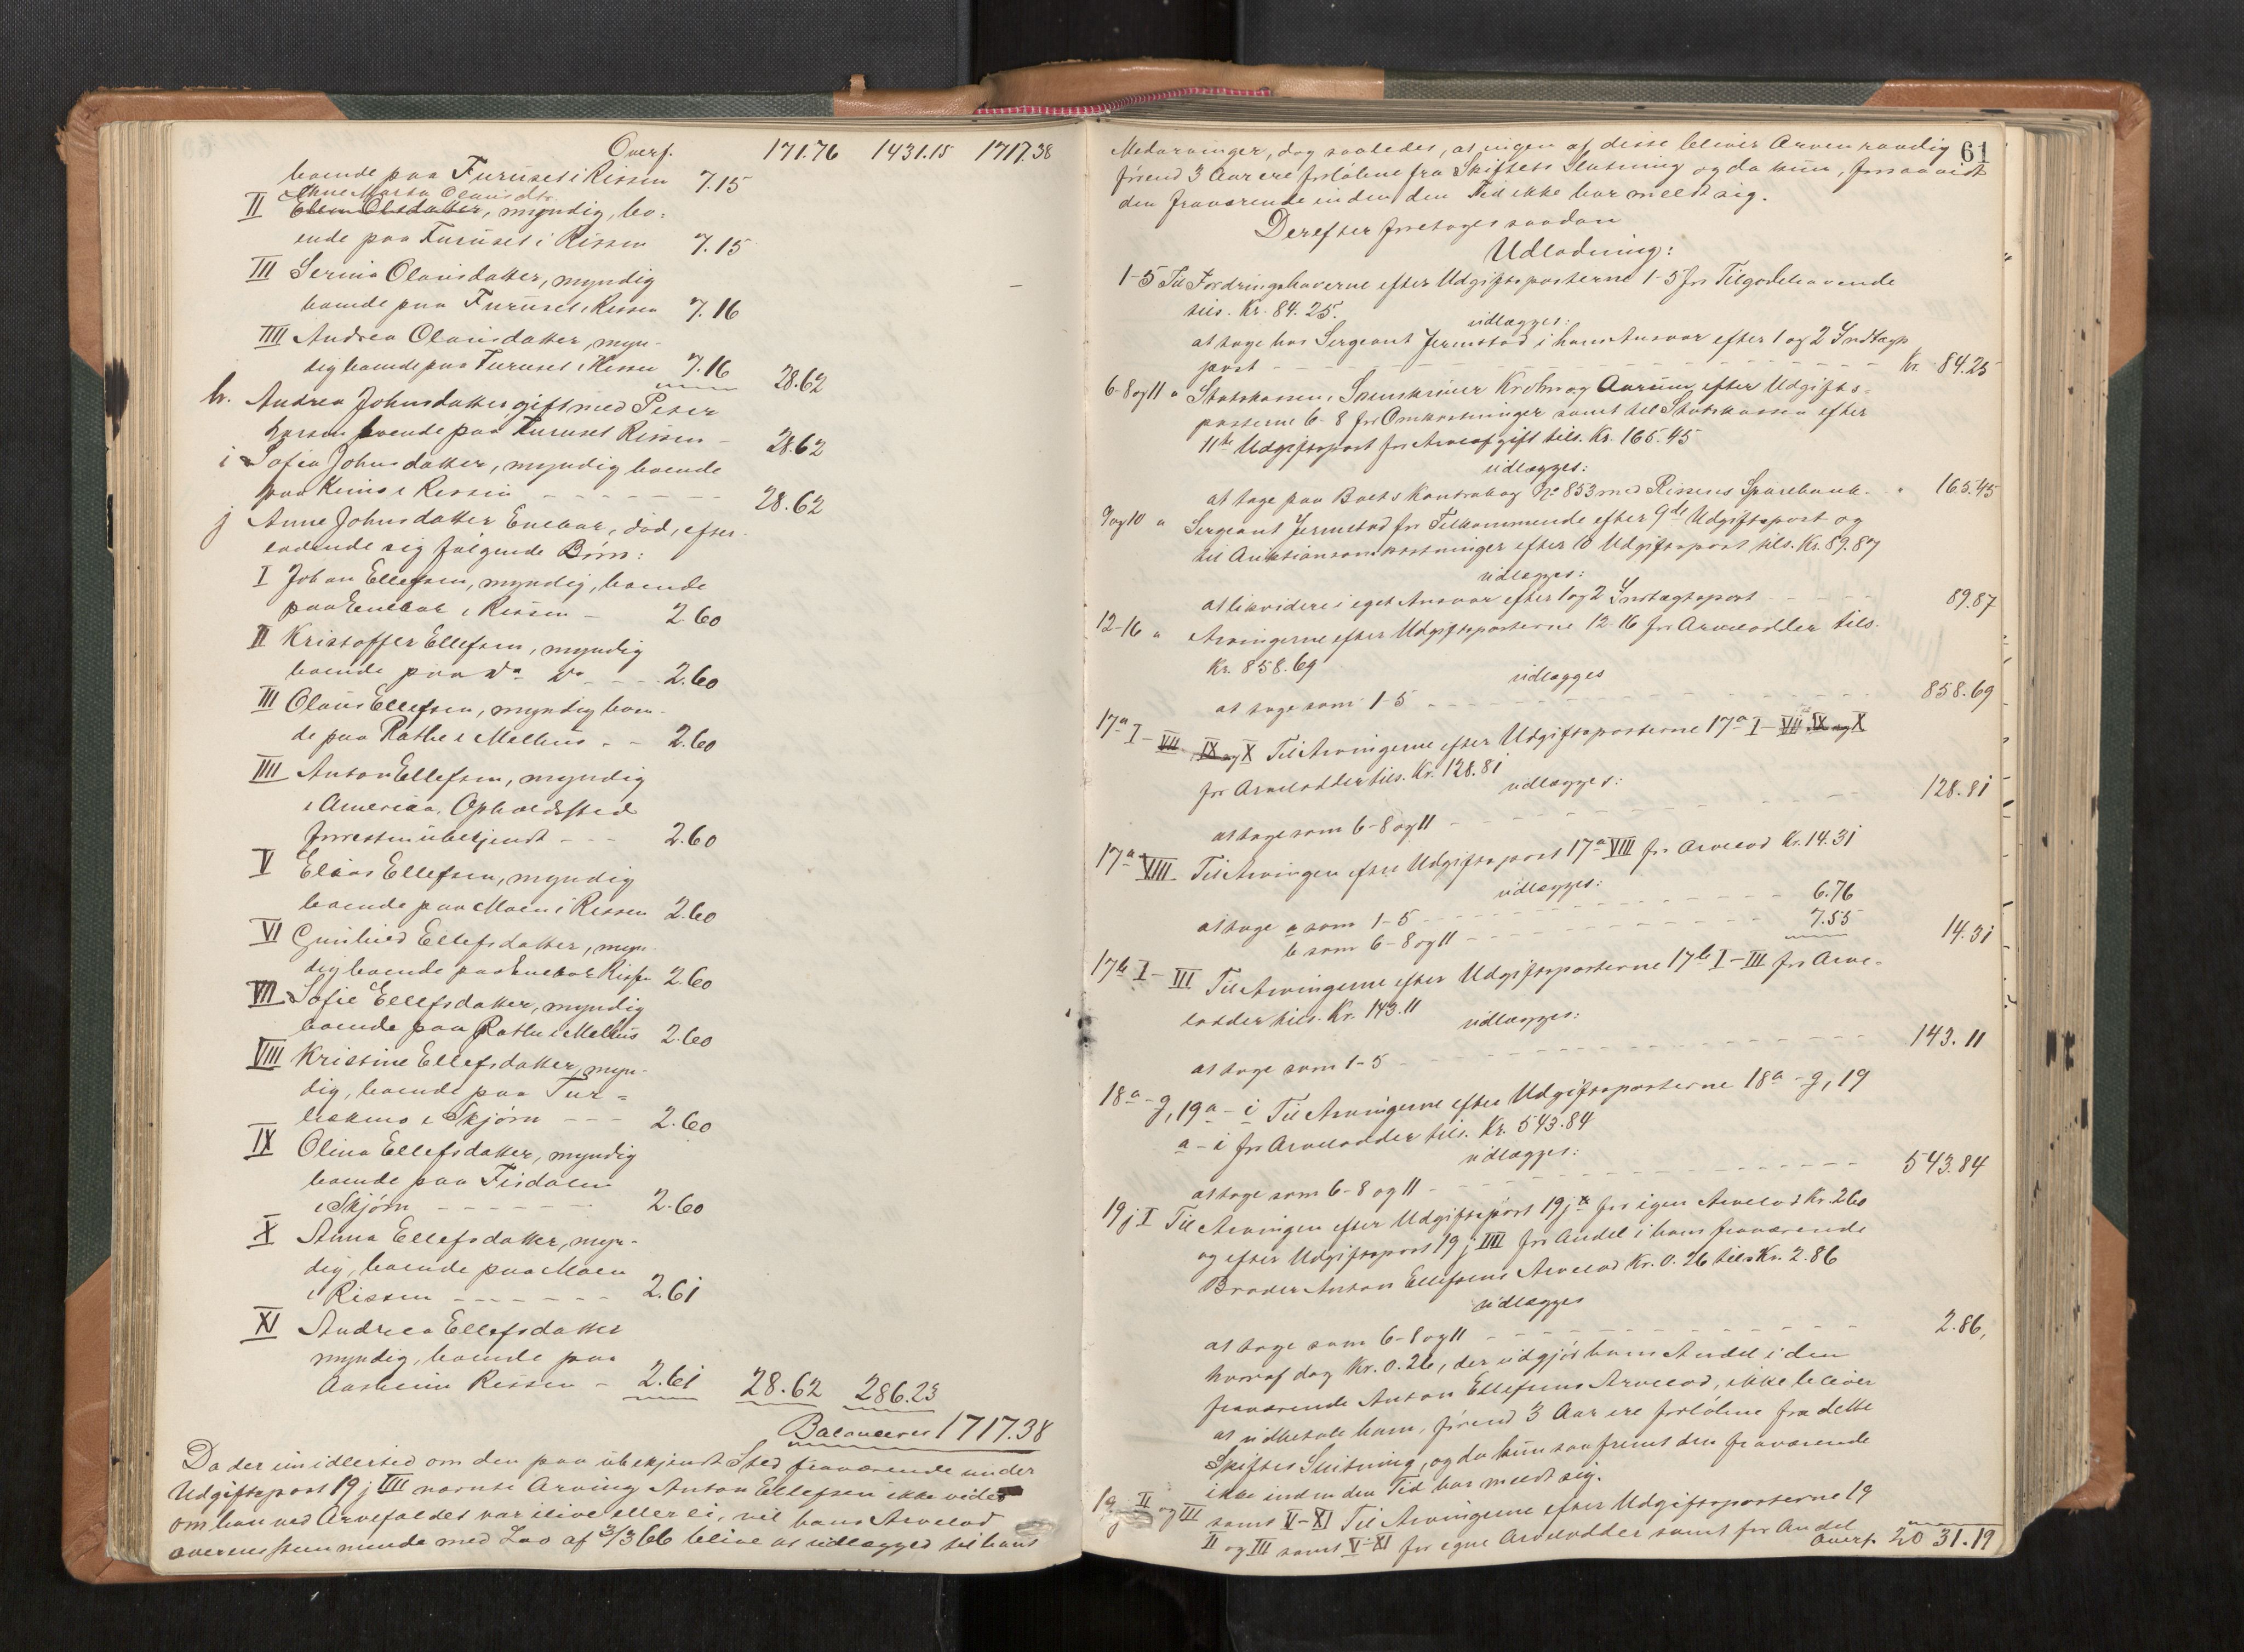 Overf. 171.76 1431.15 1717.38
boende paa Furuset i Rissen 7.15
Ane Marta Olausdtr.
II Ellen Olsdatter, myndig, bo=
ende paa Furuset i Rissen 7.15
III Serina Olausdatter, myndig
boende paa Furuset i Rissen 7.16
IIII Andrea Olausdatter, myn-
dig boende paa Furuset i Rissen 7.16 28.62
h. Andrea Johnsdatter gift med Peter
Larsen boende paa Furuset Rissen – 28.62
i Sofia Johnsdatter, myndig boende
paa i Rissen – – – – – – 28.62
j Anne Johnsdatter Enebar, död, efter-
ladende sig følgende Börn:
I Johan Ellefsen, myndig, boende
paa Enebar i Rissen – 2.60
II Kristoffer Ellefsen, myndig
boende paa Do Do – – – 2.60
III Olaus Ellefsen, myndig boen-
de paa Rathe i Melhus – – 2.60
IIII Anton Ellefsen, myndig
i Amerika, Opholdssted
forresten ubekjendt – – – 2.60
V Elias Ellefsen, myndig
boende paa Moen i Rissen 2.60
VI Gunhild Ellefsdatter, myn-
dig boende paa Enebar Rissen 2.60
VII Sofie Ellefsdatter, myndig
boende paa Rathe i Melhus 2.60
VIII Kristine Ellefsdatter, myn-
dig, boende paa Tur=
i Skjörn – – – 2.60
IX Olina Ellefsdatter, myndig
boende paa
i Skjörn – – – – – – 2.60
X Anna Ellefsdatter, myn-
dig, boende paa Moen
i Rissen – – – – – – 2.61
XI Andrea Ellefsdatter
myndig, boende paa
Aasheim Rissen – 2.61 28.62 286.23
Balancerer 1717.38
Da der imidlertid om den paa ubekjendt Sted fraværende under
Udgiftspost 19 j IIII nævnte Arving Anton Ellefsen ikke vides
om han ved Arvefaldet var ilive eller ei, vil hans Arvelod
overensstemmende med Lov af 3/3 66 blive at udlægges til hans
61
Medarvinger, dog saaledes, at ingen af disse bliver Arven raadig
förend 3 Aar ere forløbne fra Skiftets Slutning og da kun, forsaavidt
den fraværende inden den Tid ikke har meldt sig.
Derefter foretoges saadan
Udlodning:
1-5 Til Fordringshaverne efter Udgiftsposterne 1-5 for Tilgodehavende
tils. Kr. 84.25.
udlægges:
at tage hos Sergeant Jermstad i hans Ansvar efter 1 og 2 Indtægts
post – – – – – – Kr. 84.25
6-8 og 11 " Statskassen, Sorenskriver Krohn og efter Udgifts-
posterne 6-8 for Omkostninger samt til Statskassen efter
11te Udgiftspost for Arveafgift tils. Kr. 165.45
udlægges:
at tage paa Boets Kontrabog No 853 med Rissens Sparebank. " 165.45
9 og 10 " Sergeant Jermstad for Tilkommende efter 9de Udgiftspost og
til Auktionsomkostninger efter 10 Udgiftspost tils. Kr. 89.87
udlægges:
at likvidere i eget Ansvar efter 1 og 2 Indtægtspost – – – – 89.87
12-16 " Arvingerne efter Udgiftsposterne 12-16 for Arvelodder tils.
Kr. 858.69
udlægges
at tage som 1-5 – – – – – – 858.69
17a I – VII IX og X Til Arvingerne efter Udgiftsposterne 17a I – VII IX og X
for Arvelodder tils. Kr. 128.81
udlægges:
at tage som 6-8 og 11 – – – – – – 128.81
17a VIII Til Arvingen efter Udgiftspost 17a VIII for Arvelod Kr. 14.31
udlægges:
at tage a som 1-5 – – – – – – 6.76
b som 6-8 og 11 – – – – – – 7.55 14.31
17b I – III Til Arvingerne efter Udgiftsposterne 17b I – III for Arve-
lodder tils. Kr. 143.11
udlægges:
at tage som 1-5 – – – – – – 143.11
18a – g, 19a – i Til Arvingerne efter Udgiftsposterne 18a – g, 19
a – i for Arvelodder tils. Kr. 543.84
udlægges:
at tage som 6-8 og 11 – – – – – – 543.84
19 j I Til Arvingen efter Udgiftspost 19 j for egen Arvelod Kr. 2.60
og efter Udgiftspost 19 j IIII for Andel i hans fraværende
Broder Anton Ellefsens Arvelod Kr. 0.26 tils Kr. 2.86
udlægges
at tage som 6-8 og 11 – – – – – – 2.86,
hvoraf dog Kr. 0.26, der udgjör hans Andel i den
fraværende Anton Ellefsens Arvelod, ikke bliver
at udbetale ham, förend 3 Aar ere forløbne fra dette
Skiftes Slutning, og da kun saafremt den fraværende
ikke inden den Tid har meldt sig.
19 j II og III samt V – XI Til Arvingerne efter Udgiftsposterne 19
II og III samt V – XI for egne Arvelodder samt for Andel
Overf. 2031.19